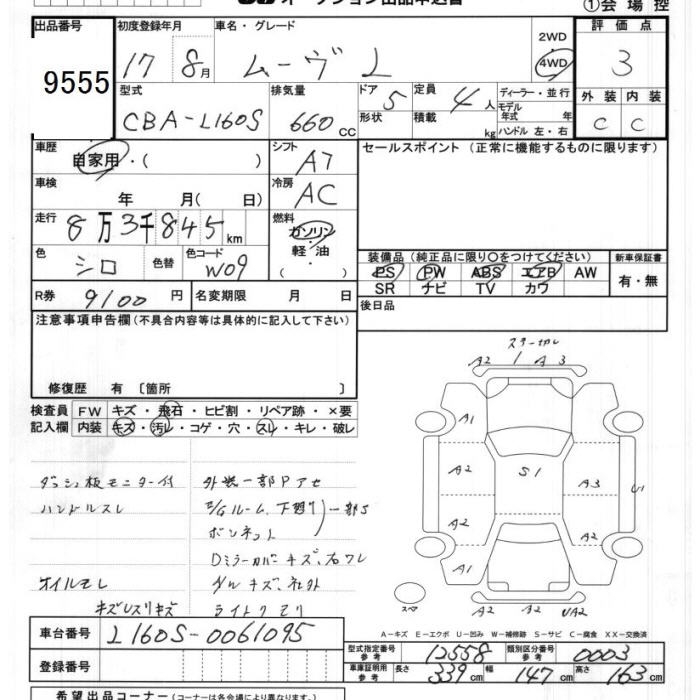 ①会場控
出品番号 初度登録年月 車名・グレード 評価点
9555 17 8月 ムーヴ L 2WD 4WD 3
型式 排気量 ドア 5 定員 4人 ディーラー・並行 外装 内装
CBA-L160S 660cc 形状 積載 kg モデル年式 年 ハンドル 左・右 C C
車歴 自家用・( ) シフト A7 セールスポイント(正常に機能するものに限ります)
車検 年 月(日) 冷房 AC
走行 8万3千845km 燃料 ガソリン 軽・油 ・( )
色 シロ 色替 色コード W09 装備品(純正品に限り○をつけてください) 新車保証書
PS PW ABS エアB AW 有・無
SR ナビ TV カワ
R券 9100円 名変期限 月 日 後日品
注意事項申告欄(不具合内容等は具体的に記入して下さい)
修復歴 有 〔箇所 〕
A2 1 A 3
検査員記入欄 FW キズ・飛石・ヒビ割・リペア跡・×要
内装 キズ・汚レ・コゲ・穴・スレ・キレ・破レ
A1
A2 S1 A3 U1
A2 A2
A1
A2 A2 UA2
ダッシュ板モニター付 外装一部Pアセ
ハンドルスレ E/Gルーム、下廻り 一部S
ボンネット
Dミラーカバーキズ、右ワレ
オイルモレ
キズレスリキズ ライトクモリ
スペア
A-キズ E-エクボ U-凹み W-補修跡 S-サビ C-腐食 XX-交換済
車台番号 L160S-0061095
型式指定番号 参考 12558 類別区分番号 参考 0003
登録番号 車庫証明用 参考 長さ 339cm 幅 147cm 高さ 163cm
希望出品コーナー(コーナーは各会場により異なります)